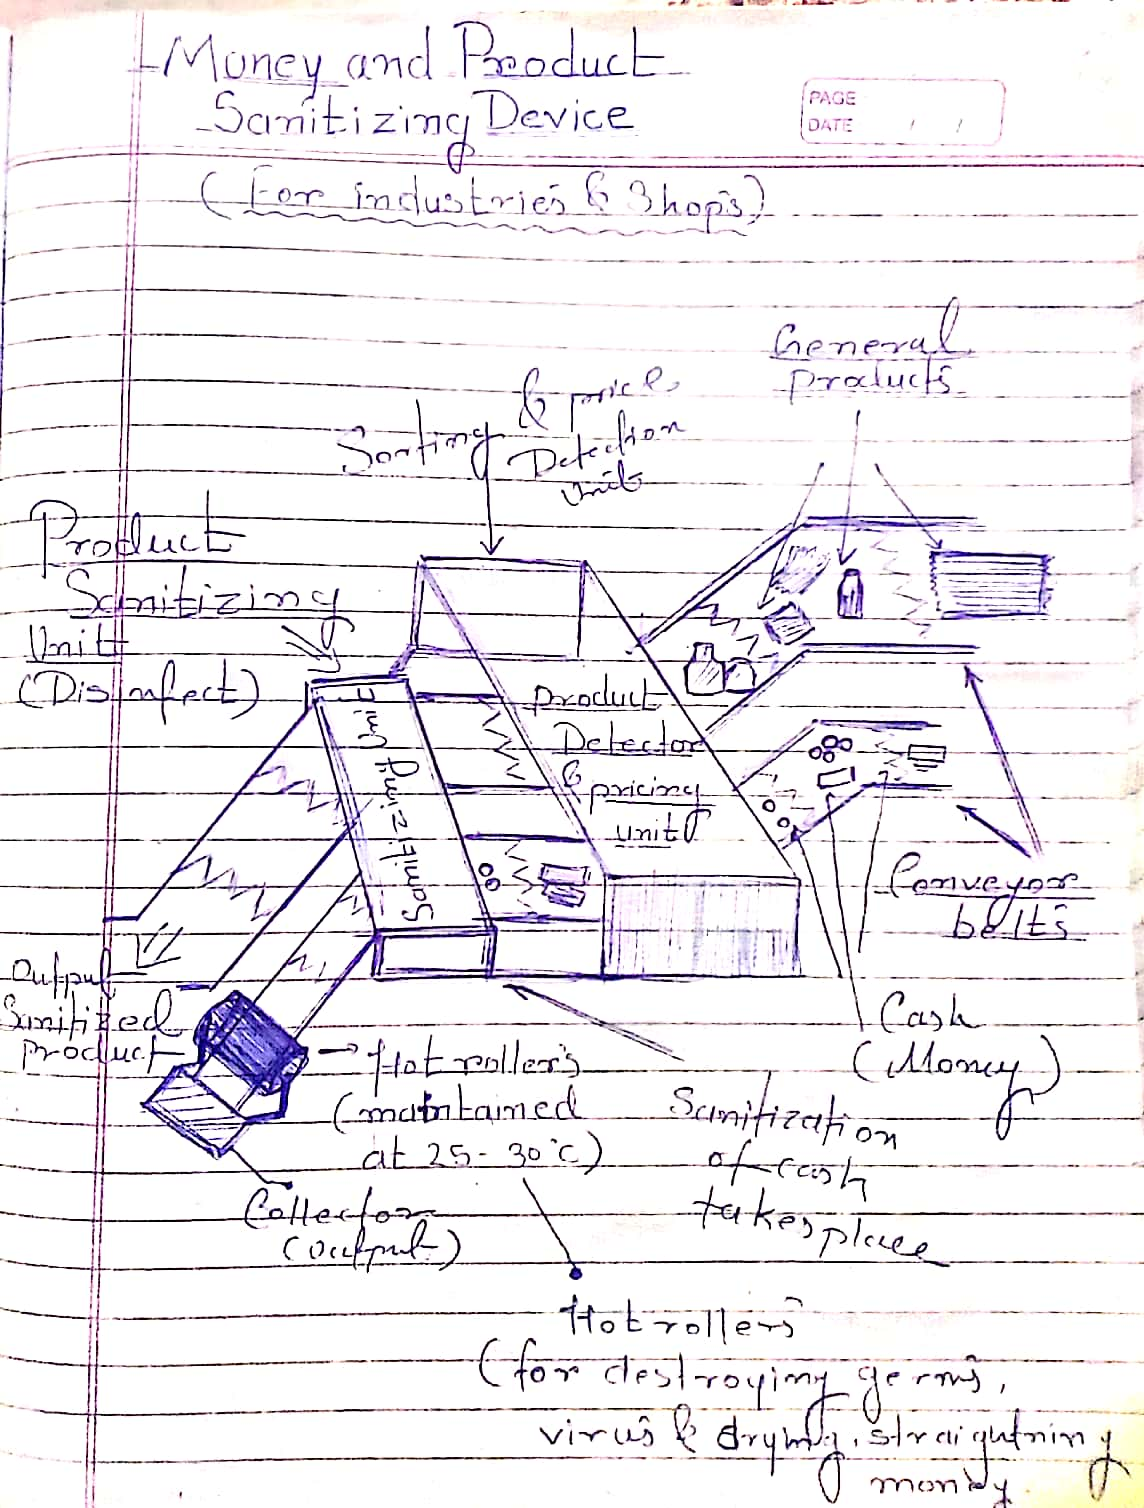 Money and Product
Sanitizing Device
PAGE
DATE / /
(For industries & Shops)
General
products
Sorting & price
Detection
Unit
Product
Sanitizing
Unit
(Disinfect)
Product
Detector
& pricing
unit
Sanitizing Unit
Conveyor
belts
Output
Sanitized
product
Cash
(Money)
Hot rollers
(maintained
at 25-30°C)
Sanitization
of cash
takes place
Collector
(output)
Hot rollers
(for destroying germs,
virus & drying, straightning
money